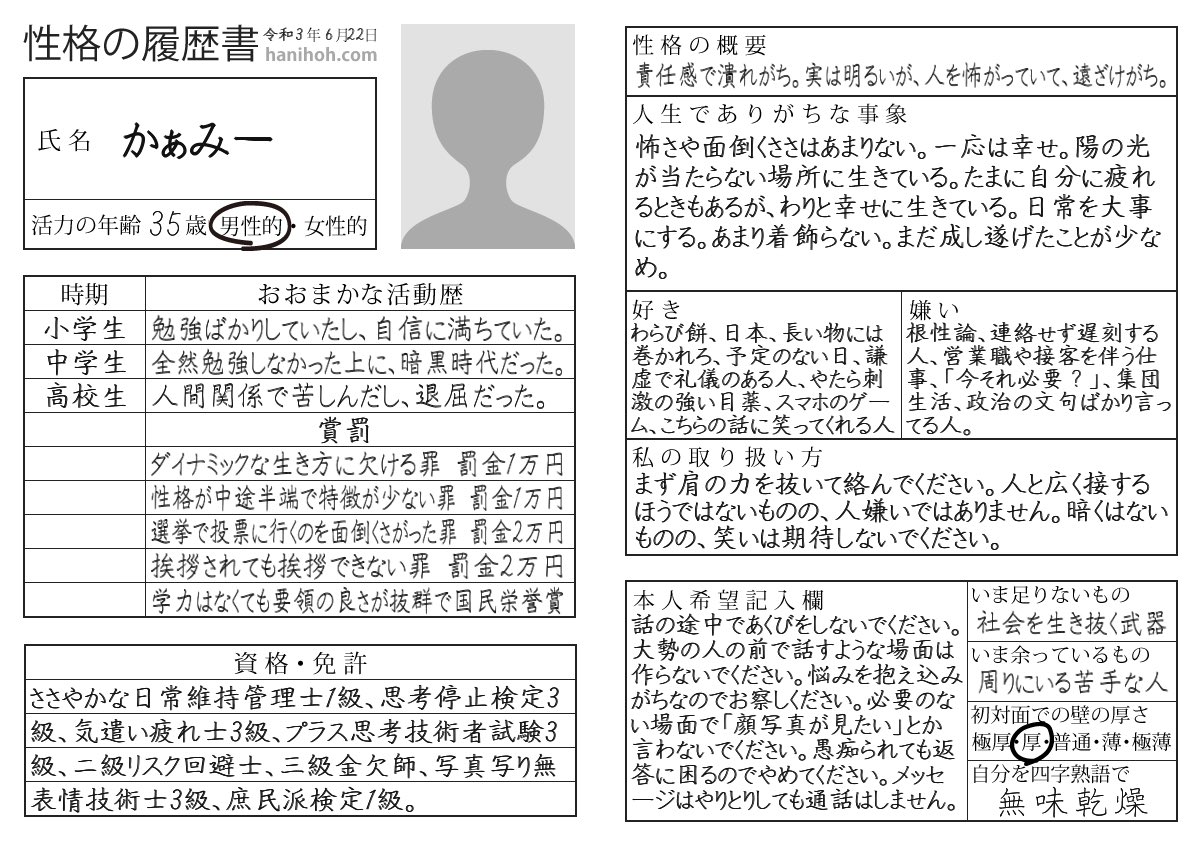 性格の履歴書 令和3年6月22日
hanihoh.com
氏名 かぁみー
活力の年齢 35歳 男性的・女性的
時期 おおまかな活動歴
小学生 勉強ばかりしていたし、自信に満ちていた。
中学生 全然勉強しなかった上に、暗黒時代だった。
高校生 人間関係で苦しんだし、退屈だった。
賞罰
ダイナミックな生き方に欠ける罪 罰金1万円
性格が中途半端で特徴が少ない罪 罰金1万円
選挙で投票に行くのを面倒くさがった罪 罰金2万円
挨拶されても挨拶できない罪 罰金2万円
学力はなくても要領の良さが抜群で国民栄誉賞
資格・免許
ささやかな日常維持管理士1級、思考停止検定3
級、気遣い疲れ士3級、プラス思考技術者試験3
級、二級リスク回避士、三級金欠師、写真写り無
表情技術士3級、庶民派検定1級。
性格の概要
責任感で潰れがち。実は明るいが、人を怖がっていて、遠ざけがち。
人生でありがちな事象
怖さや面倒くささはあまりない。一応は幸せ。陽の光
が当たらない場所に生きている。たまに自分に疲れ
るときもあるが、わりと幸せに生きている。日常を大事
にする。あまり着飾らない。まだ成し遂げたことが少な
め。
好き
わらび餅、日本、長い物には
巻かれろ、予定のない日、謙
虚で礼儀のある人、やたら刺
激の強い目薬、スマホのゲー
ム、こちらの話に笑ってくれる人
嫌い
根性論、連絡せず遅刻する
人、営業職や接客を伴う仕
事、「今それ必要？」、集団
生活、政治の文句ばかり言っ
てる人。
私の取り扱い方
まず肩の力を抜いて絡んでください。人と広く接する
ほうではないものの、人嫌いではありません。暗くはない
ものの、笑いは期待しないでください。
本人希望記入欄
話の途中であくびをしないでください。
大勢の人の前で話すような場面は
作らないでください。悩みを抱え込み
がちなのでお察しください。必要のな
い場面で「顔写真が見たい」とか
言わないでください。愚痴られても返
答に困るのでやめてください。メッセ
ージはやりとりしても通話はしません。
いま足りないもの
社会を生き抜く武器
いま余っているもの
周りにいる苦手な人
初対面での壁の厚さ
極厚・厚・普通・薄・極薄
自分を四字熟語で
無味乾燥